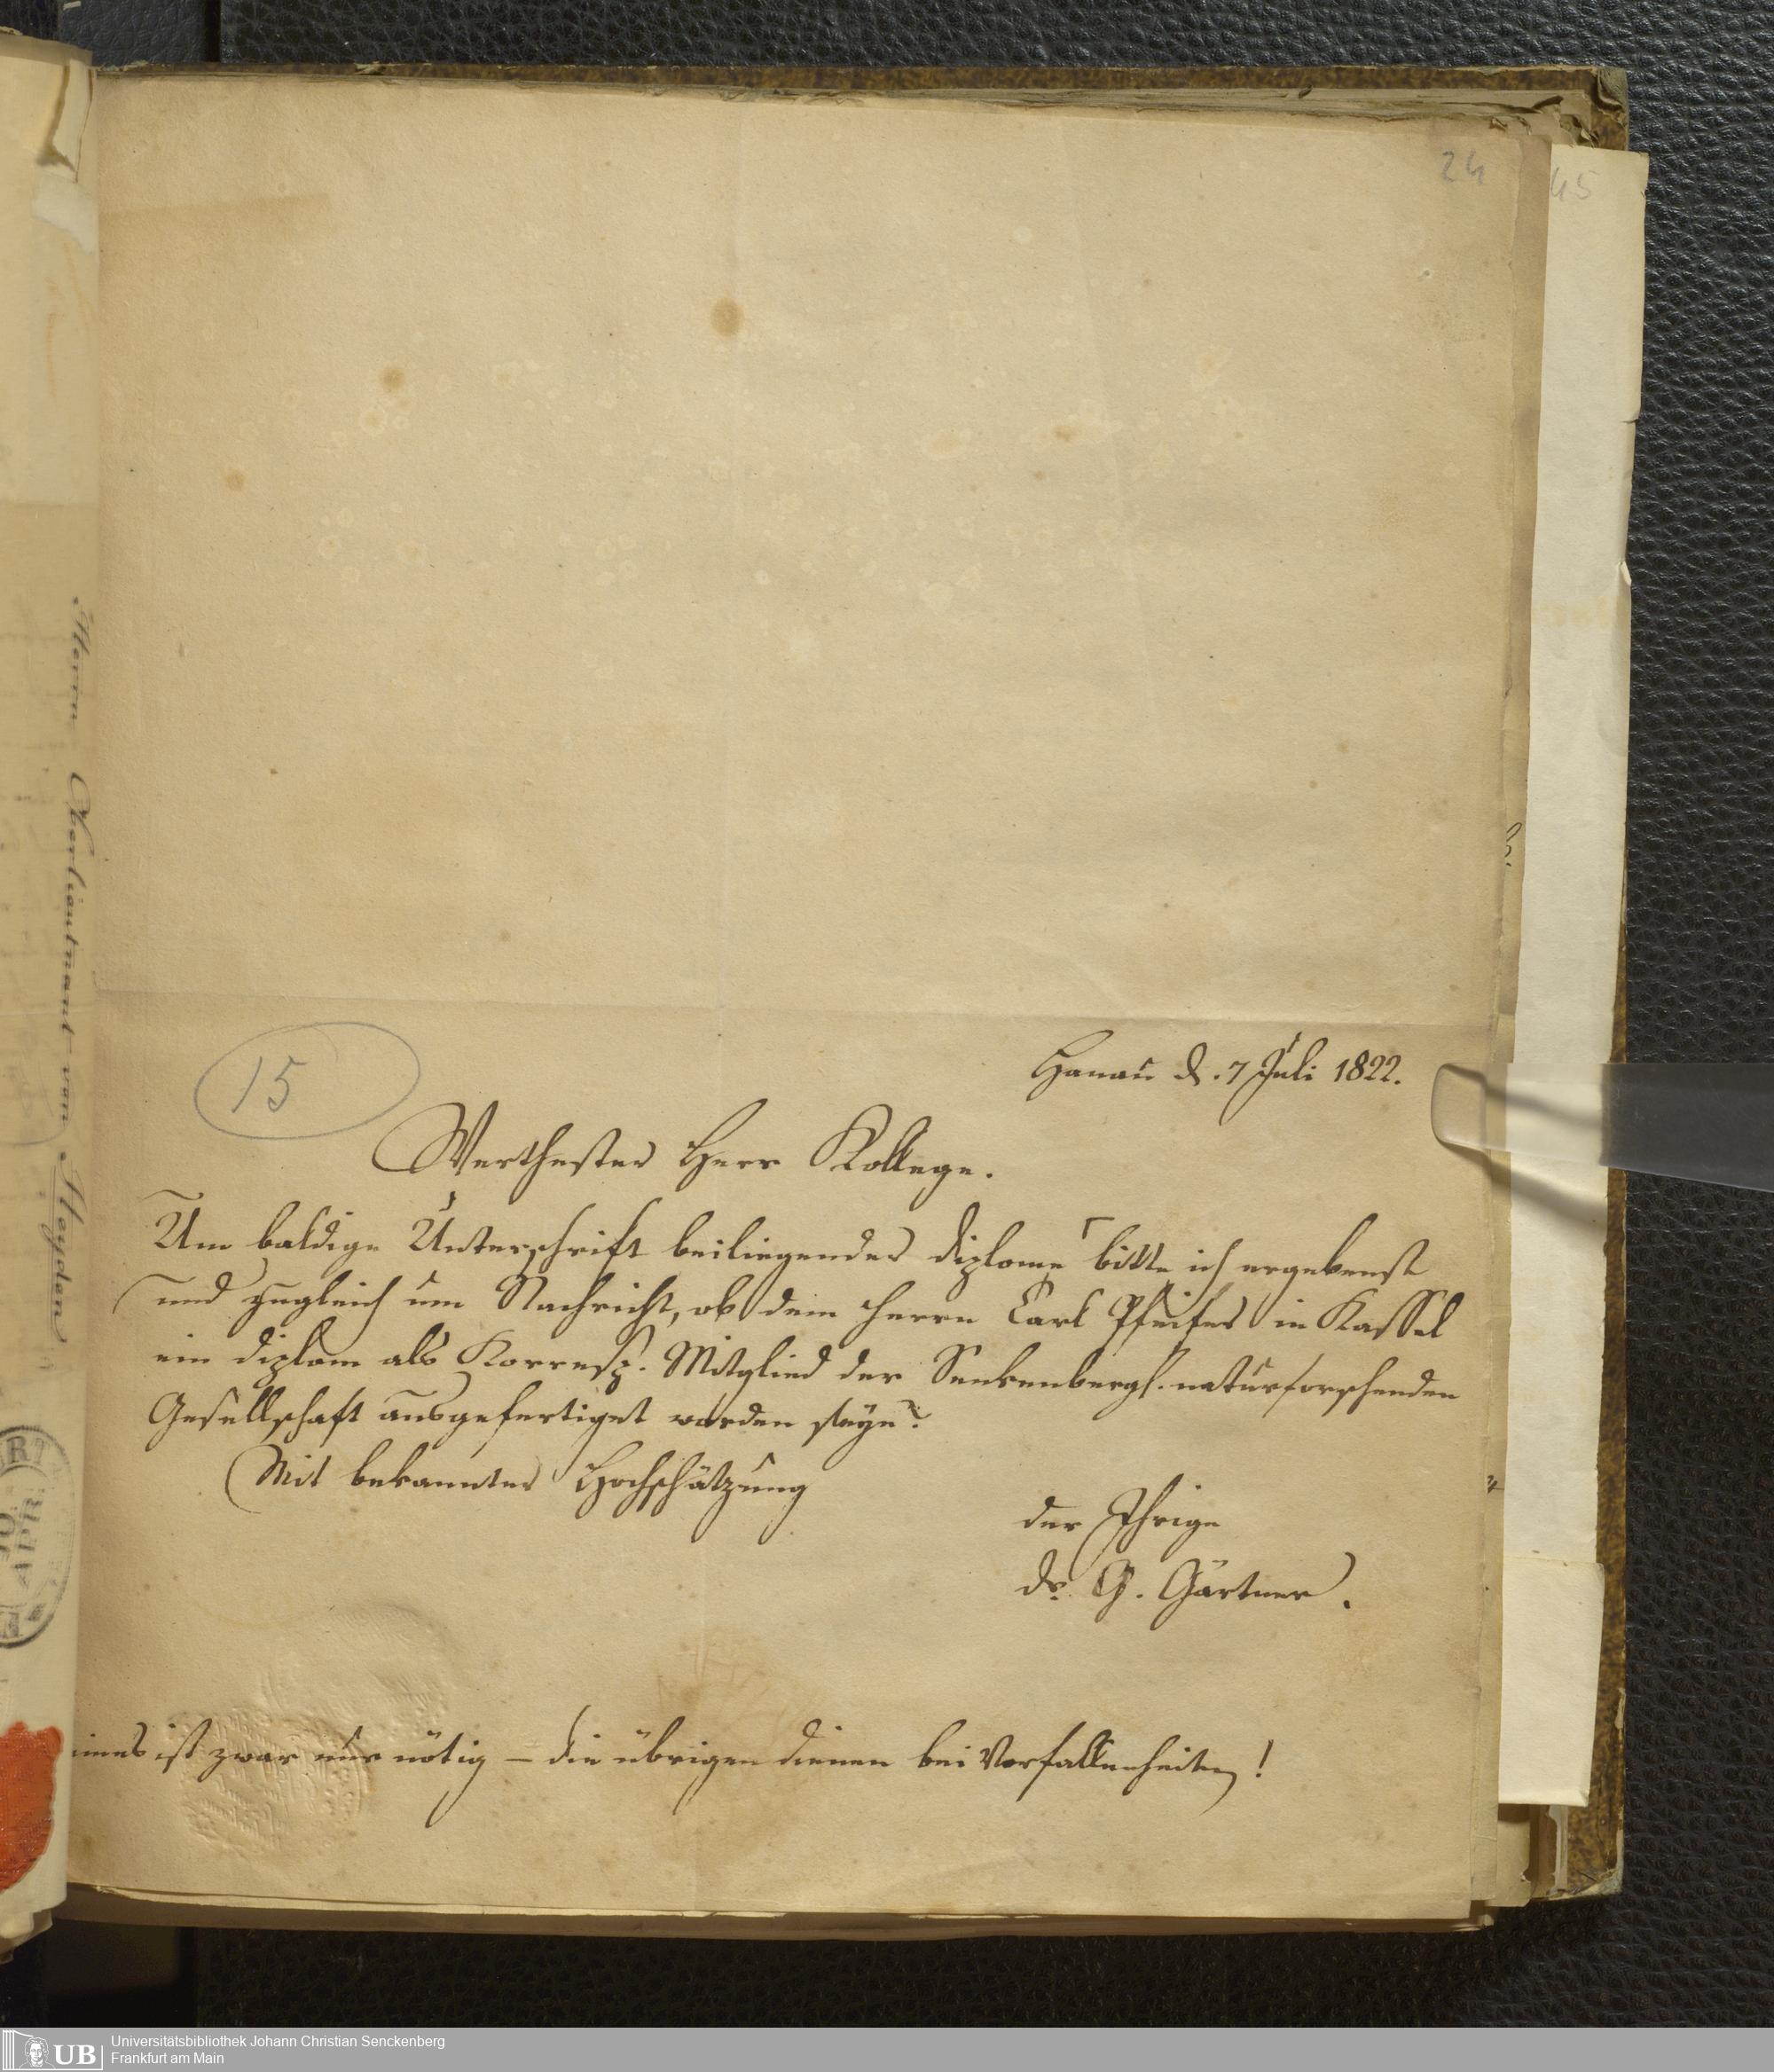 24
45
15
Hanau d. 7 Juli 1822.
Werthester Herr Kollege.
Um baldige Unterschrift beiliegender Diplome ⌈ bitte ich ergebenst
und zugleich um Nachricht, ob dem Herrn Carl Pfeifer in Kassel
ein Diplom als Korresp. Mitglied der Senkenbergs. naturforschenden
Gesellschaft ausgefertiget worden seye?
Mit bekannter Hochschätzung
der Ihrige
Dr. G. Gärtner.
eines ist zwar nur nötig – die übrigen dienen bei Vorfallenheiten!
Herrn Oberlieutnant von Heyden
APR.
UB
Universitätsbibliothek Johann Christian Senckenberg
Frankfurt am Main